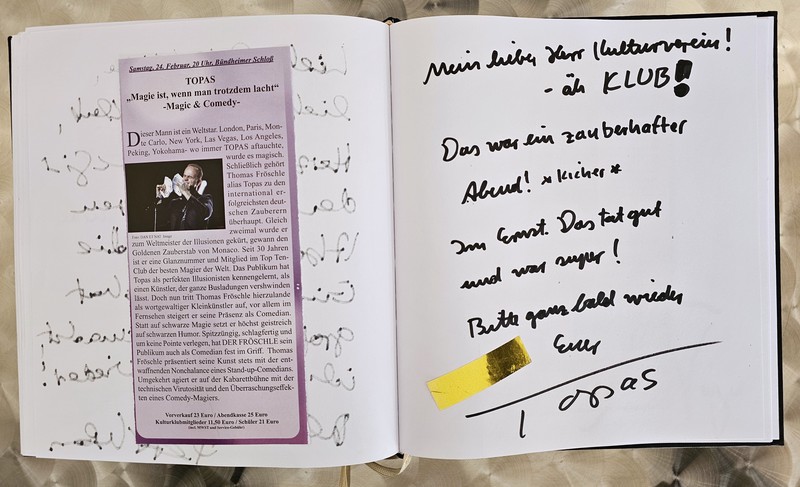 Samstag, 24. Februar, 20 Uhr, Bündheimer Schloß
TOPAS
„Magie ist, wenn man trotzdem lacht“
-Magic & Comedy-
Dieser Mann ist ein Weltstar. London, Paris, Mon-
te Carlo, New York, Las Vegas, Los Angeles,
Peking, Yokohama- wo immer TOPAS auftauchte,
wurde es magisch.
Schließlich gehört
Thomas Fröschle
alias Topas zu den
international er-
folgreichsten deut-
schen Zauberern
überhaupt. Gleich
zweimal wurde er
zum Weltmeister der Illusionen gekürt, gewann den
Goldenen Zauberstab von Monaco. Seit 30 Jahren
ist er eine Glanznummer und Mitglied im Top Ten-
Club der besten Magier der Welt. Das Publikum hat
Topas als perfekten Illusionisten kennengelernt, als
einen Künstler, der ganze Busladungen verschwinden
lässt. Doch nun tritt Thomas Fröschle hierzulande
als wortgewaltiger Kleinkünstler auf, vor allem im
Fernsehen steigert er seine Präsenz als Comedian.
Statt auf schwarze Magie setzt er höchst geistreich
auf schwarzen Humor. Spitzzüngig, schlagfertig und
um keine Pointe verlegen, hat DER FRÖSCHLE sein
Publikum auch als Comedian fest im Griff. Thomas
Fröschle präsentiert seine Kunst stets mit der ent-
waffnenden Nonchalance eines Stand-up-Comedians.
Umgekehrt agiert er auf der Kabarettbühne mit der
technischen Virutosität und den Überraschungseffek-
ten eines Comedy-Magiers.
Vorverkauf 23 Euro / Abendkasse 25 Euro
Kulturklubmitglieder 11,50 Euro / Schüler 21 Euro
(incl. MWST und Service-Gebühr)
Mein lieber Herr Kulturverein!
- äh KLUB!
Das war ein zauberhafter
Abend! *kicher*
Im Ernst. Das tat gut
und war super!
Bitte ganz bald wieder
Euer
Topas